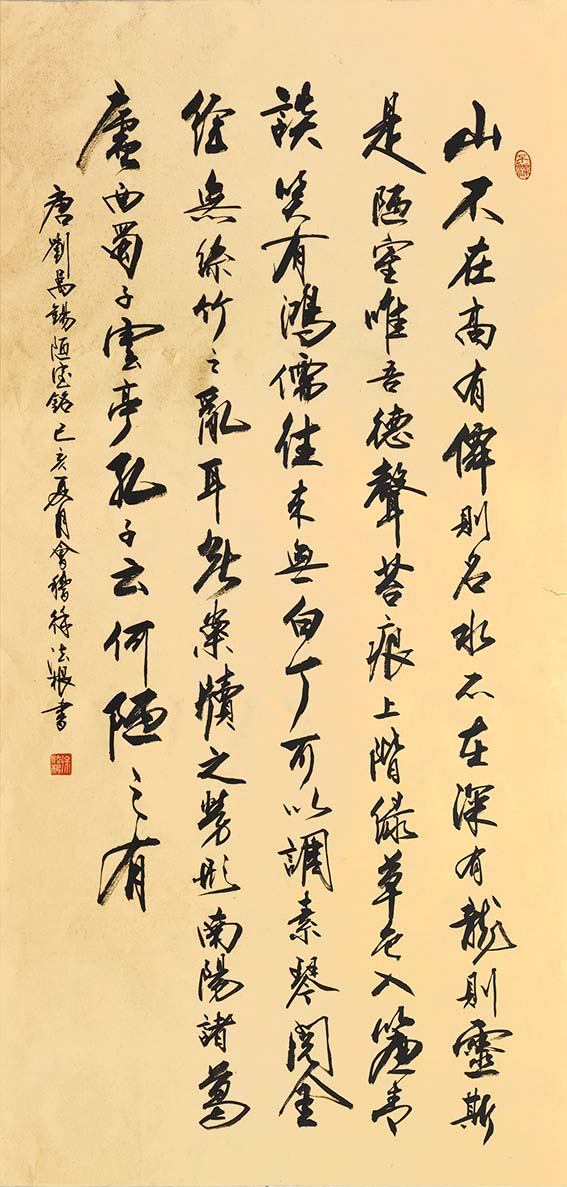 山不在高有僊則名水不在深有龍則靈斯
是陋室唯吾德馨苔痕上階綠草色入簾青
談笑有鴻儒往來無白丁可以調素琴閱金
經無絲竹之亂耳無案牘之勞形南陽諸葛
廬西蜀子雲亭孔子云何陋之有
唐劉禹錫陋室銘己亥夏月會稽徐法根書